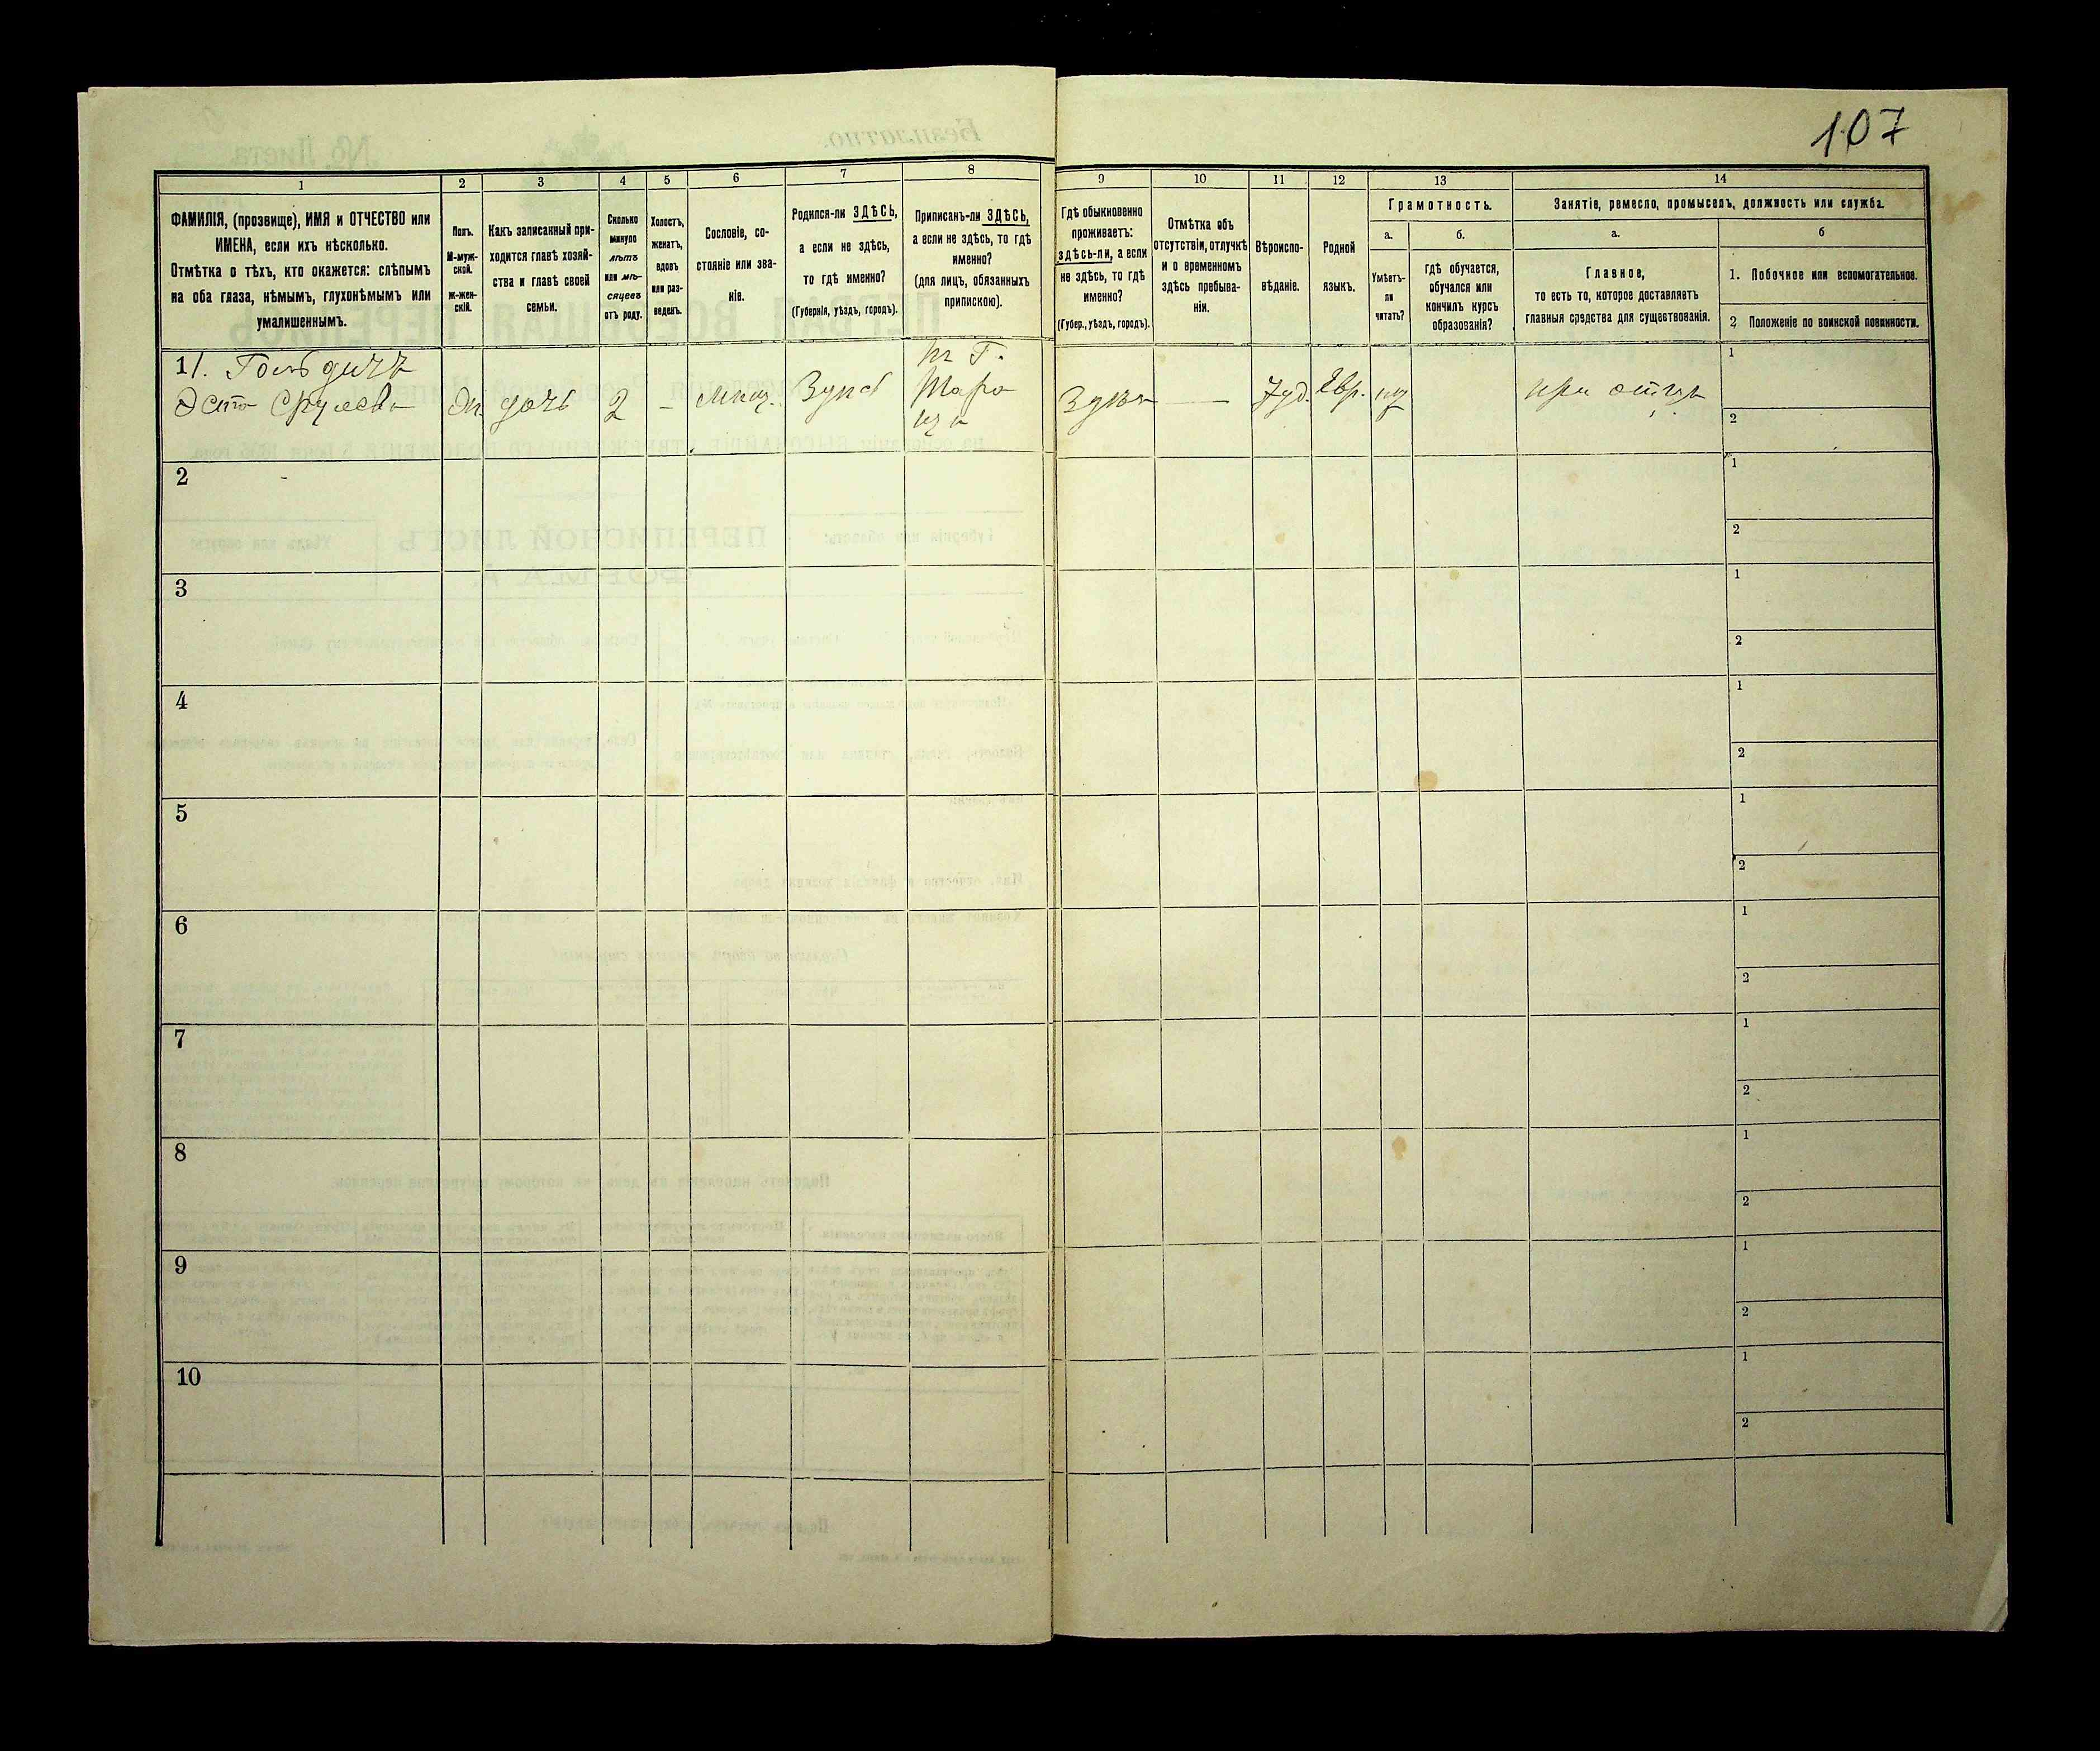 107
1
2
3
4
5
6
7
8
9
10
11
12
13
14
ФАМИЛІЯ, (прозвище), ИМЯ и ОТЧЕСТВО или
ИМЕНА, если ихъ нѣсколько.
Отмѣтка о тѣхъ, кто окажется: слѣпымъ
на оба глаза, нѣмымъ, глухонѣмымъ или
умалишеннымъ.
Полъ.
М-муж-
ской.
ж-жен-
скій.
Какъ записанный при-
ходится главѣ хозяй-
ства и главѣ своей
семьи.
Сколько
минуло
лѣтъ
или мѣ-
сяцевъ
отъ роду.
Холостъ,
женатъ,
вдовъ
или раз-
веденъ.
Сословіе, со-
стояніе или зва-
ніе.
Родился-ли ЗДѢСЬ,
а если не здѣсь,
то гдѣ именно?
(Губернія, уѣздъ, городъ).
Приписанъ-ли ЗДѢСЬ,
а если не здѣсь, то гдѣ
именно?
(для лицъ, обязанныхъ
припискою).
Гдѣ обыкновенно
проживаетъ:
здѣсь-ли, а если
не здѣсь, то гдѣ
именно?
(Губер., уѣздъ, городъ).
Отмѣтка объ
отсутствіи, отлучкѣ
и о временномъ
здѣсь пребыва-
ніи.
Вѣроиспо-
вѣданіе.
Родной
языкъ.
Грамотность.
а.
Умѣетъ-
ли
читать?
б.
гдѣ обучается,
обучался или
кончилъ курсъ
образованія?
Занятіе, ремесло, промыселъ, должность или служба.
а.
Главное,
то есть то, которое доставляетъ
главныя средства для существованія.
б
1. Побочное или вспомогательное.
2 Положеніе по воинской повинности.
11.
дочь
2
-
мѣщ.
Здѣсь
Здѣсь
—
Іуд.
Евр.
при отцѣ
1
2
2
1
2
3
1
2
4
1
2
5
1
2
6
1
2
7
1
2
8
1
2
9
1
2
10
1
2